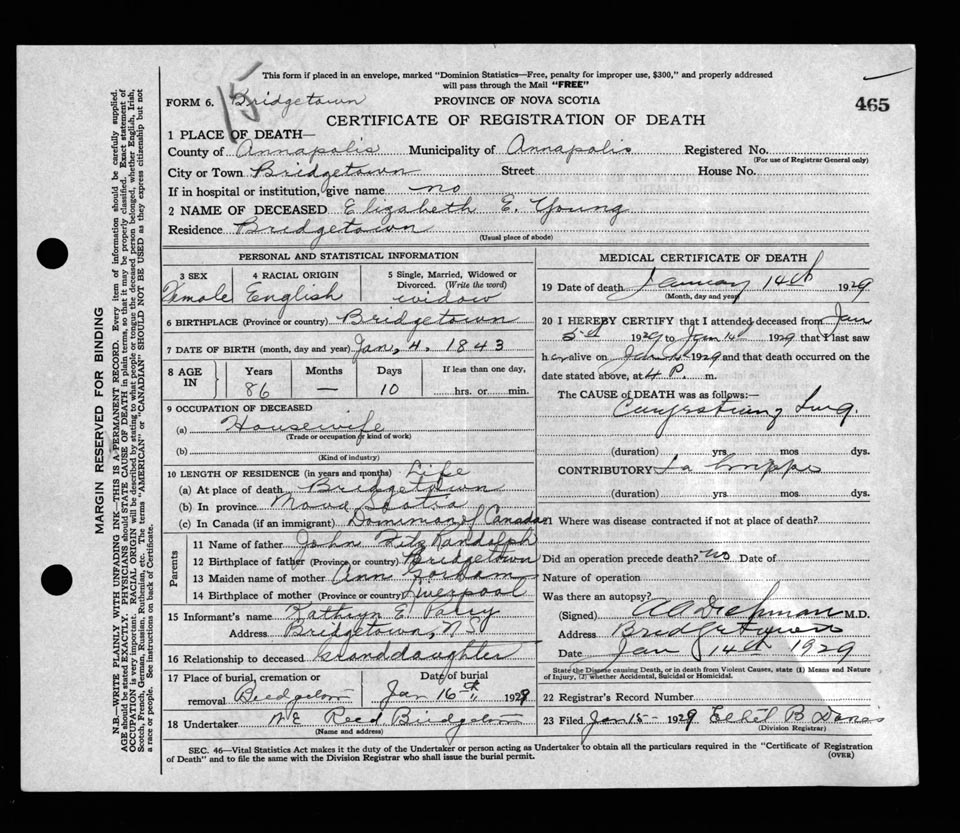 This form if placed in an envelope, marked "Dominion Statistics—Free, penalty for improper use, $300," and properly addressed
will pass through the Mail "FREE"
FORM 6. Bridgetown PROVINCE OF NOVA SCOTIA 465
15
CERTIFICATE OF REGISTRATION OF DEATH
1 PLACE OF DEATH—
County of Annapolis Municipality of Annapolis Registered No.
(For use of Registrar General only)
City or Town Bridgetown Street House No.
If in hospital or institution, give name no
2 NAME OF DECEASED Elizabeth E. Young
Residence Bridgetown
(Usual place of abode)
PERSONAL AND STATISTICAL INFORMATION
3 SEX 4 RACIAL ORIGIN 5 Single, Married, Widowed or
Divorced. (Write the word)
Female English widow
6 BIRTHPLACE (Province or country) Bridgetown
7 DATE OF BIRTH (month, day and year) Jan, 4. 1843
8 AGE IN Years Months Days If less than one day,
86 — 10 hrs. or min.
9 OCCUPATION OF DECEASED
(a) Housewife
(Trade or occupation or kind of work)
(b)
(Kind of industry)
10 LENGTH OF RESIDENCE (in years and months) Life
(a) At place of death Bridgetown
(b) In province Nova Scotia
(c) In Canada (if an immigrant) Dominion of Canada
Parents
11 Name of father John Fitz Randolph
12 Birthplace of father (Province or country) Bridgetown
13 Maiden name of mother Ann
14 Birthplace of mother (Province or country) Liverpool
15 Informant's name Kathryn E. Parry
Address Bridgetown, N.S.
16 Relationship to deceased Granddaughter
17 Place of burial, cremation or Date of burial
removal Bridgetown Jan 16th 1929
18 Undertaker Reed Bridgetown
(Name and address)
MEDICAL CERTIFICATE OF DEATH
19 Date of death January 14th 1929
(Month, day and year)
20 I HEREBY CERTIFY that I attended deceased from Jan
1929 to Jan 14 1929 that I last saw
her alive on Jan 1929 and that death occurred on the
date stated above, at 4 P. m.
The CAUSE of DEATH was as follows:—
Lung.
(duration) yrs. mos dys.
CONTRIBUTORY La Grippe
(duration) yrs mos. dys.
21 Where was disease contracted if not at place of death?
Did an operation precede death? no Date of
Nature of operation
Was there an autopsy?
(Signed) M.D.
Address Bridgetown
Date Jan 14th 1929
State the Disease causing Death, or in death from Violent Causes, state (1) Means and Nature
of Injury, (2) whether Accidental, Suicidal or Homicidal.
22 Registrar's Record Number
23 Filed Jan 15 - 1929 Ethel B
(Division Registrar)
SEC. 46—Vital Statistics Act makes it the duty of the Undertaker or person acting as Undertaker to obtain all the particulars required in the "Certificate of Registration
of Death" and to file the same with the Division Registrar who shall issue the burial permit.
(OVER)
MARGIN RESERVED FOR BINDING
N.B.—WRITE PLAINLY WITH UNFADING INK—THIS IS A PERMANENT RECORD. Every item of information should be carefully supplied.
AGE should be stated EXACTLY. PHYSICIANS should STATE CAUSE OF DEATH in plain terms, so that it may be properly classified. Exact statement of
OCCUPATION is very important. RACIAL ORIGIN will be described by stating to what people or tongue the deceased person belonged, whether English, Irish,
Scotch, French, German, Russian, Ruthenian, etc. The terms "AMERICAN" or "CANADIAN" SHOULD NOT BE USED as they express citizenship but not
a race or people. See instructions on back of Certificate.